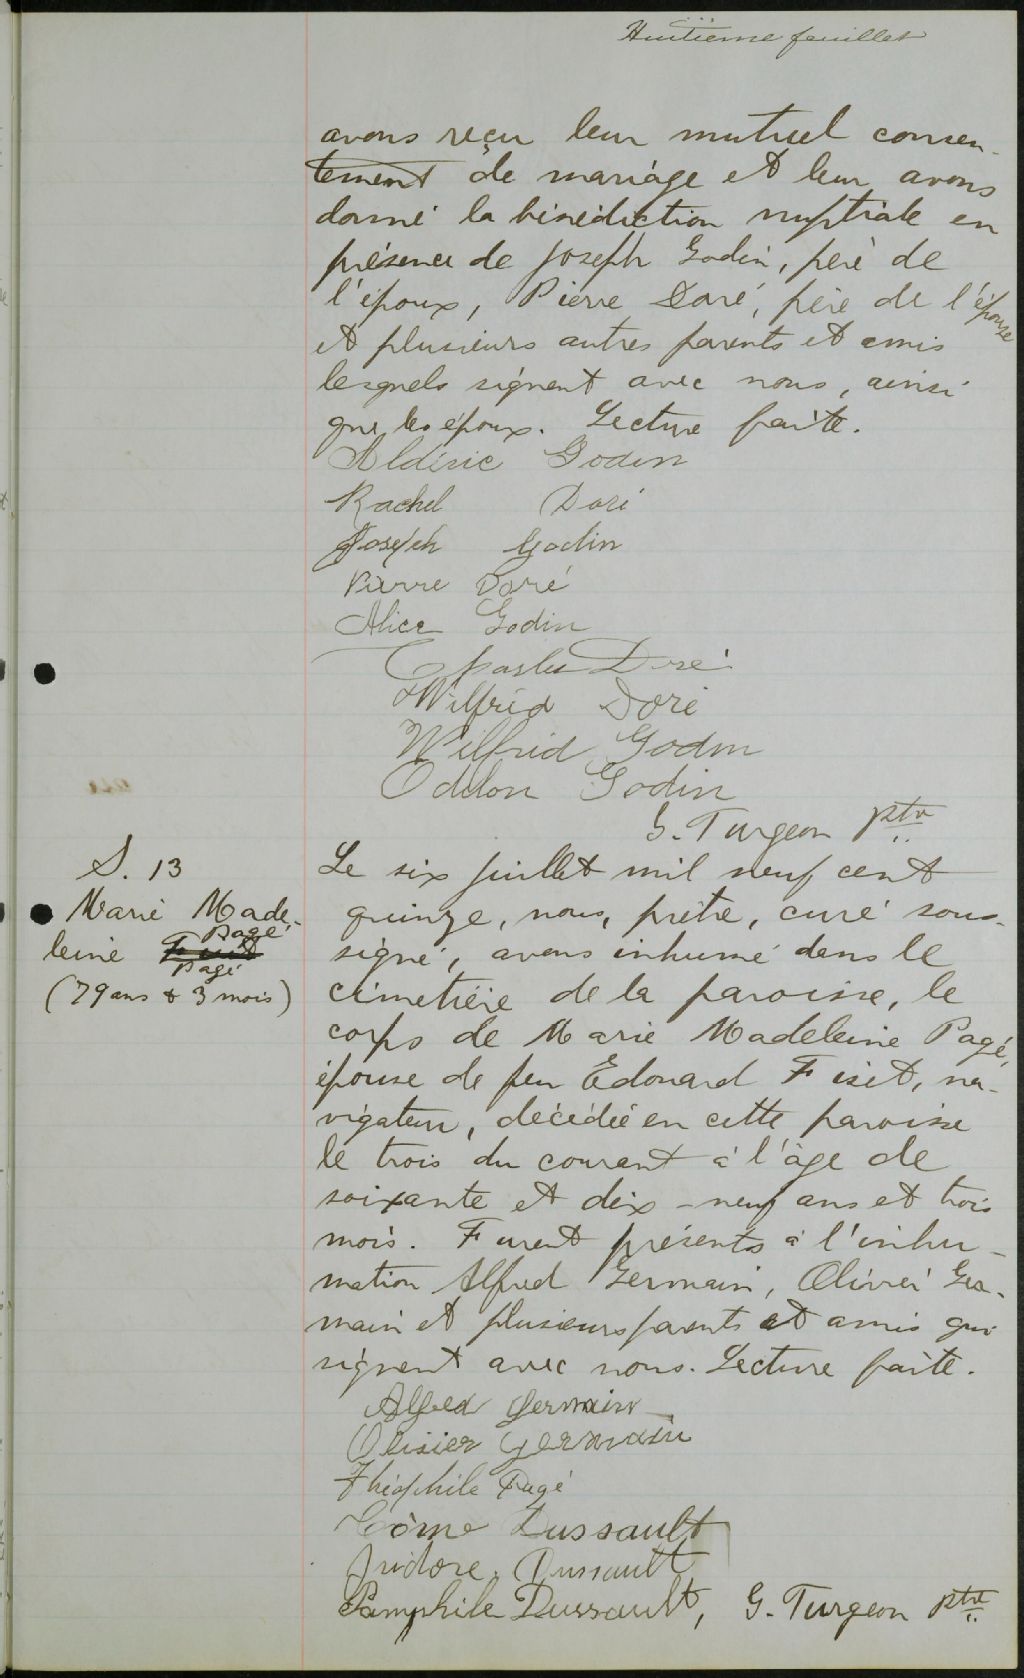 Huitième feuillet
avons reçu leur mutuel consen-
tement de mariage et leur avons
donné la bénédiction nuptiale en
présence de Joseph Godin, père de
l'époux, Pierre Doré, père de l'épouse
et plusieurs autres parents et amis
lesquels signent avec nous, ainsi
que les époux. Lecture faite.
Aldéric Godin
Rachel Doré
Joseph Godin
Pierre Doré
Alice Godin
Charles Doré
Wilfrid Doré
Wilfrid Godin
Odilon Godin
G. Turgeon ptre
S. 13
Marie Made-
Pagé
leine Fiset
Pagé
(79 ans & 3 mois)
Le six juillet mil neuf cent
quinze, nous, prêtre, curé sous-
signé, avons inhumé dans le
cimetière de la paroisse, le
corps de Marie Madeleine Pagé,
épouse de feu Edouard Fiset, na-
vigateur, décédée en cette paroisse
le trois du courant à l'âge de
soixante et dix-neuf ans et trois
mois. Furent présents à l'inhu-
mation Alfred Germain, Olivier Ger-
main et plusieurs parents et amis qui
signent avec nous. Lecture faite.
Alfred Germain
Olivier Germain
Théophile Pagé
Côme Dussault
Isidore Dussault
Pamphile Dussault, G. Turgeon ptre